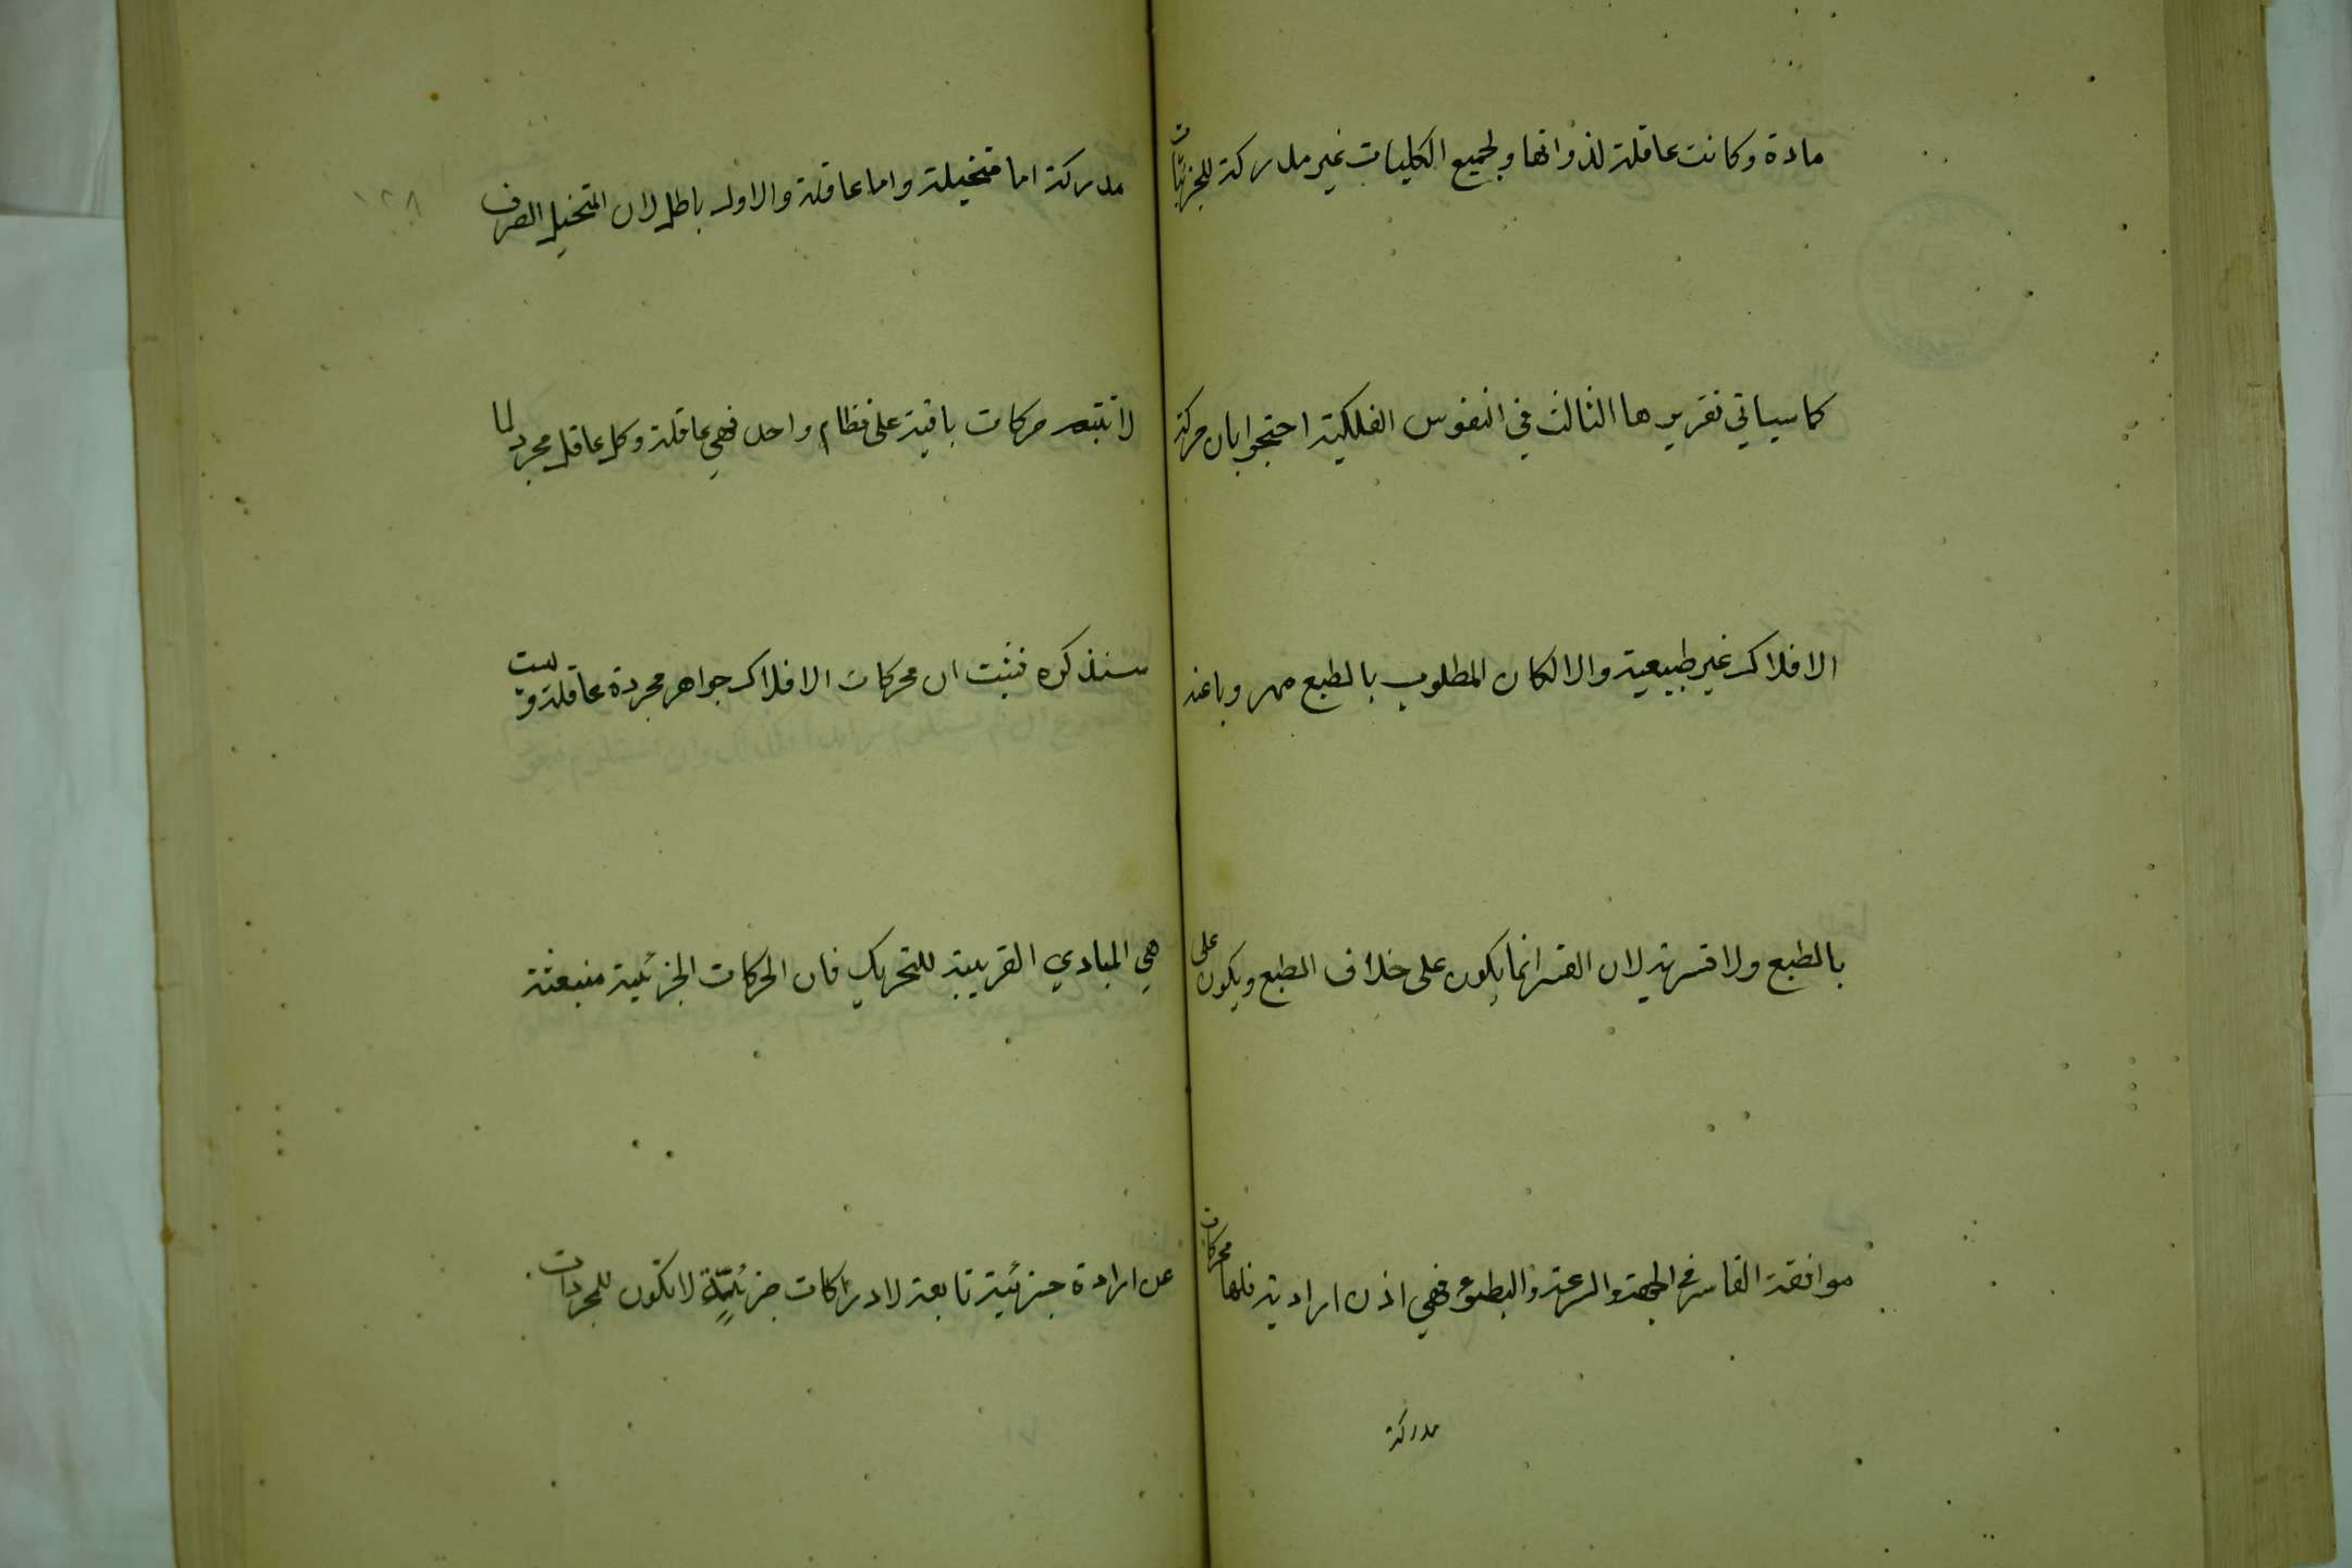 مادة وكانت عاقلة لذواتها ولجميع الكليات غير مدركة للجزئيات
كما سياتي تقريرها الثالث في النفوس الفلكية احتجوا بان حركة
الافلاك غير طبيعية والا لكان المطلوب بالطبع مهروبا عنه
بالطبع ولا قسرية لان القسر انما يكون على خلاف الطبع ويكون على
موافقة القاسر في الجهة والسرعة والبطوء فهي اذن ارادية فلها محركات
مدركة
١٢٨
مدركة اما متخيلة واما عاقلة والاول باطل لان التخيل الصرف
لا حركات باقية على نظام واحد فهي عاقلة وكل عاقل مجرد لما
سنذكره فثبت ان محركات الافلاك جواهر مجردة عاقلة وليست
هي المبادي القريبة للتحريك فان الحركات الجزئية منبعثة
عن ارادة جزئية تابعة لادراكات جزئية لا تكون للمجردات